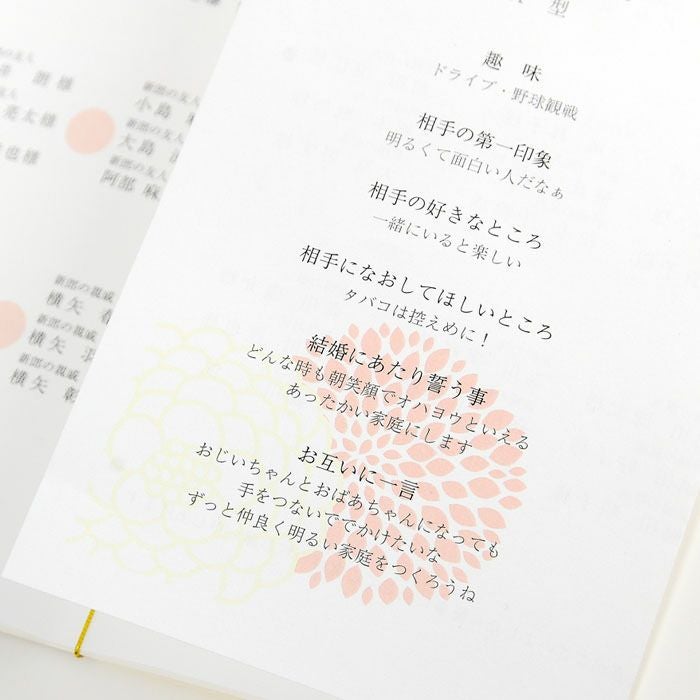 型
趣 味
ドライブ・野球観戦
相手の第一印象
明るくて面白い人だなぁ
相手の好きなところ
一緒にいると楽しい
相手になおしてほしいところ
タバコは控えめに！
結婚にあたり誓う事
どんな時も朝笑顔でオハヨウといえる
あったかい家庭にします
お互いに一言
おじいちゃんとおばあちゃんになっても
手をつないででかけたいな
ずっと仲良く明るい家庭をつくろうね
亮太様
也様
新郎の友人
小島
新郎の友人
大島
新郎の友人
阿部 麻
新郎の親戚
横矢
新郎の親戚
横矢
新郎の親戚
横矢 彰